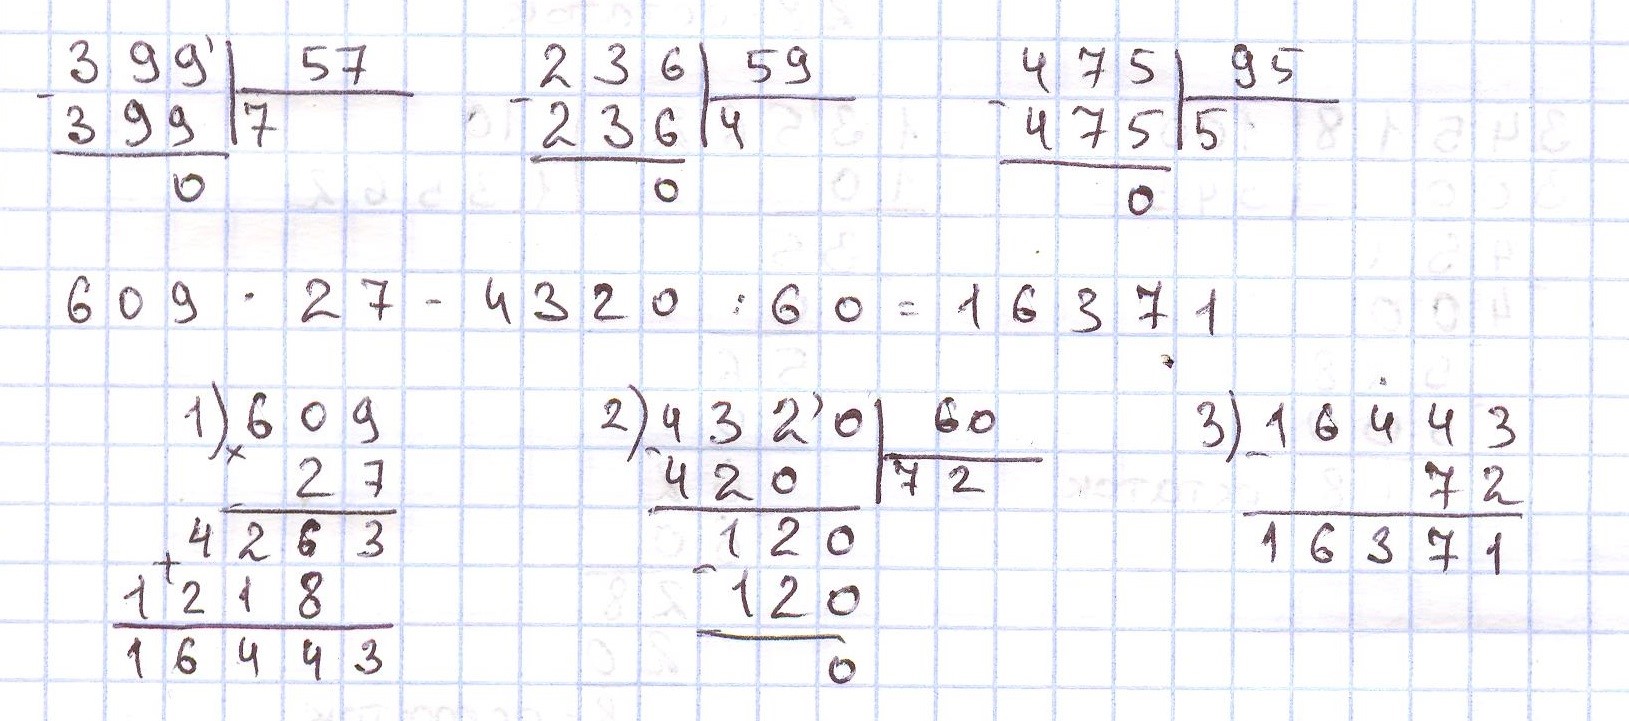 399' 57 236 59 475 95
- 399 7 - 236 4 - 475 5
0 0 0
609 · 27 - 4320 : 60 = 16371
1) 609 2) 432'0 60 3) 16443
× 27 - 420 72 - 72
4263 120 16371
+ 1218 - 120
16443 0